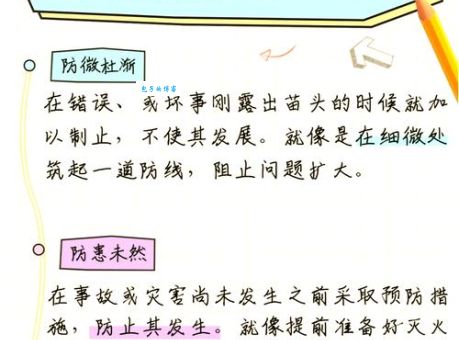 防微杜渐
包子的博客
在错误、或坏事刚露出苗头的时候就加
以制止，不使其发展。就像是在细微处
筑起一道防线，阻止问题扩大。
防患未然
在事故或灾害尚未发生之前采取预防措
施，防止其发生。就像提前准备好灭火